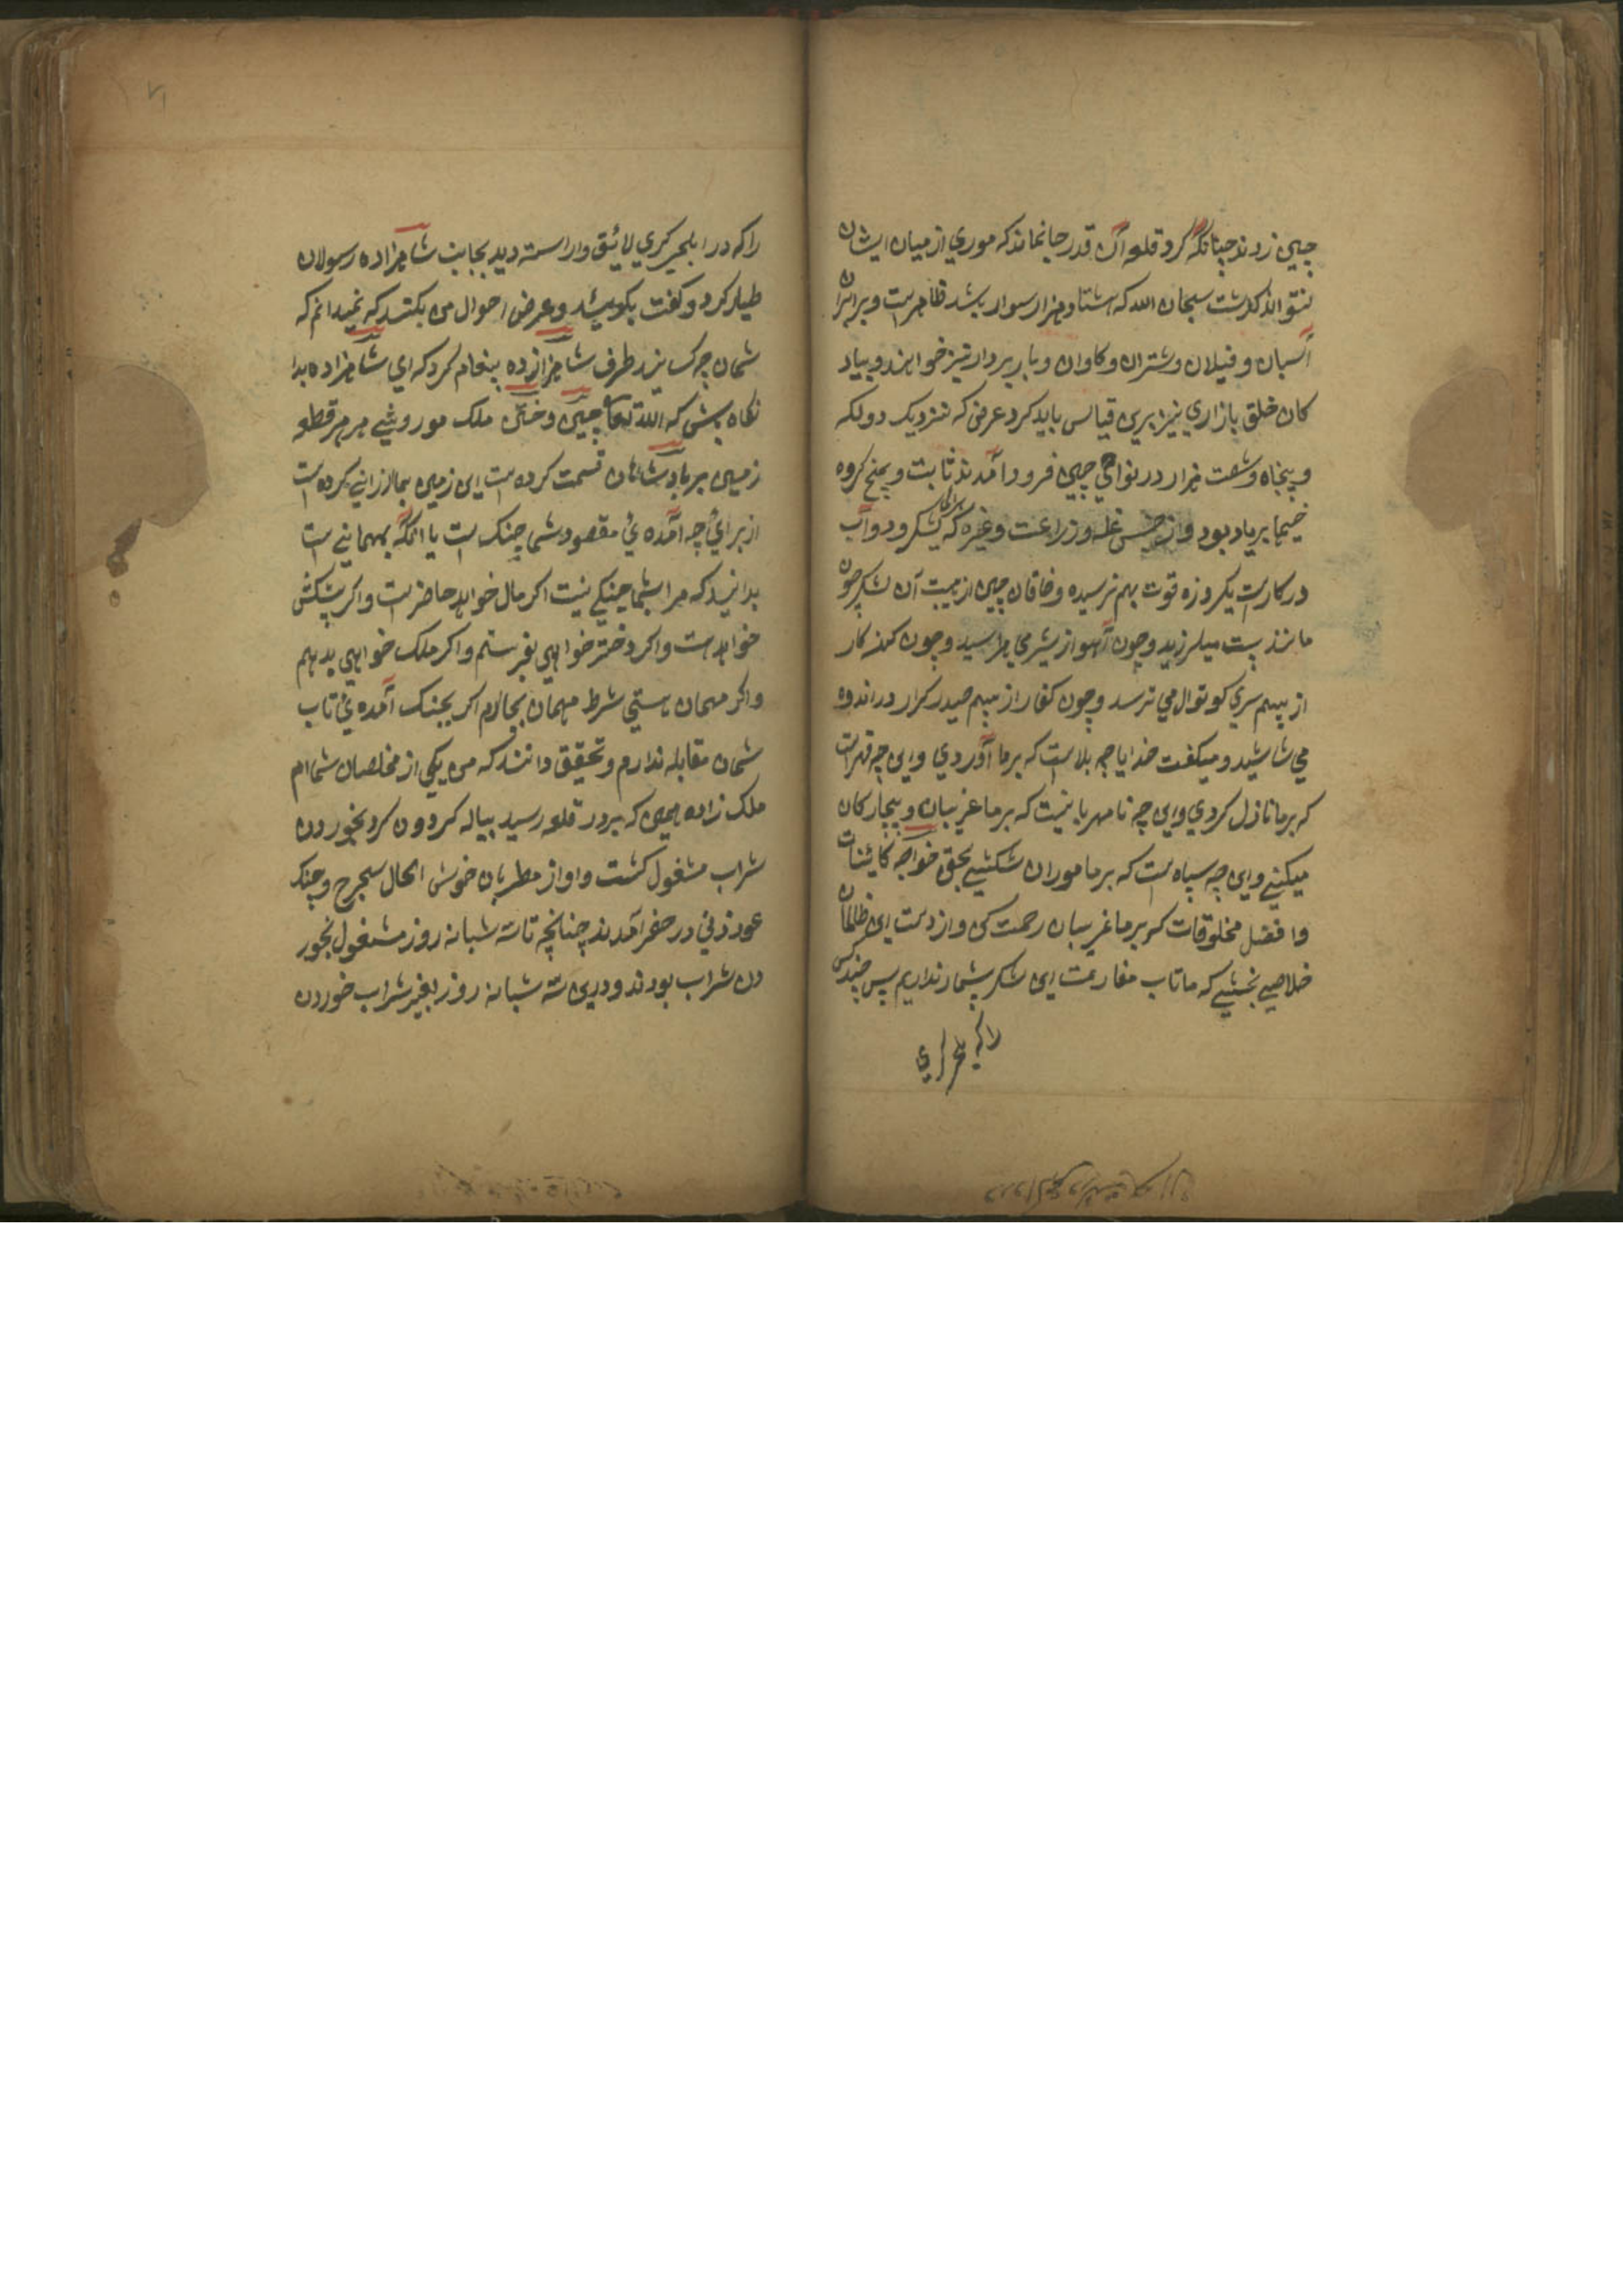 چین زدند چنانکه گرد قلعه آن قدر جا نماند که موری از میان ایشان
نتواند گذشت سبحان الله که هشتاد هزار سوار باشد ظاهرست و برابر ان
اسبان و فیلان و شتران و کاوان و بار بردار نیز خواهند و پیاد
کان خلق بازاری نیز برین قیاس باید کرد غرض که نزدیک دو لکه
و پنجاه و شصت هزار در نواحی چین فرود آمدند ثابت و پنج کروه
خیمها برپاد بود و از جنس غله و زراعت و غیره که لشکر و دواب
در کارست یکروزه قوت بهم نرسیده و خاقان چین از هیبت آن لشکر چون
مانند بیت میلرزید و چون آهو از شیر می هراسید و چون کار
از بیم سری کوتوال می ترسد و چون کفار از بیم حیدر کرار در اندوه
می شاشید و میکفت خدایا چه بلاست که بر ما آوردی و این چه قهرست
که بر ما نازل کردی و این چه نامهربانیست که بر ما غریبان و بیچارکان
میکنی و این چه سپاه ست که بر ما موران شکستی بحق خواجه کائنات
وا فضل مخلوقات که بر ما غریبان رحمت کن و از دست این ظالمان
خلاصی بخشی که ما تاب مقاومت این لشکر بیشمار نداریم پس چند کس
را که
را که در ایلچیکری لائیق و آراسته دید بجانب شاهزاده رسولان
طیار کرد و کفت بکوئید و عرض احوال من بکنند که نمیدانم که
شمان چه کس نزد طرف شاهزاده پیغام کرد که ای شاهزاده بدا
نکاه باش که الله تعا چین و ختن ملک موروثی هر هر قطعه
زمین بر بادشاهان قسمت کرده ست این زمین بما ارزانی کرده ست
از برای چه آمده ئ مقصود شما جنک ست یا انکه بمهمانی ست
بدانید که مرا بشما جنکی نیست اکر مال خواهد حاضرست و اکر پیشکش
خواهد ست و اکر دختر خواهی بفرستم و اکر ملک خواهی بدهم
و اکر مهمان هستی شرط مهمان بجا آرم اکر بجنک آمده ئ تاب
شمان مقابله ندارم و تحقیق دانند که من یکی از مخلصان شما ام
ملک زاده همین که بر در قلعه رسید پیاله کردون کرد بخوردن
شراب مشغول کشت و اواز مطربان خوش الحال و چنک
عود زنی در آمدند چنانچه تا سه شبانه روز مشغول بخور
دن شراب بودند و درین سه شبانه روز بغیر شراب خوردن